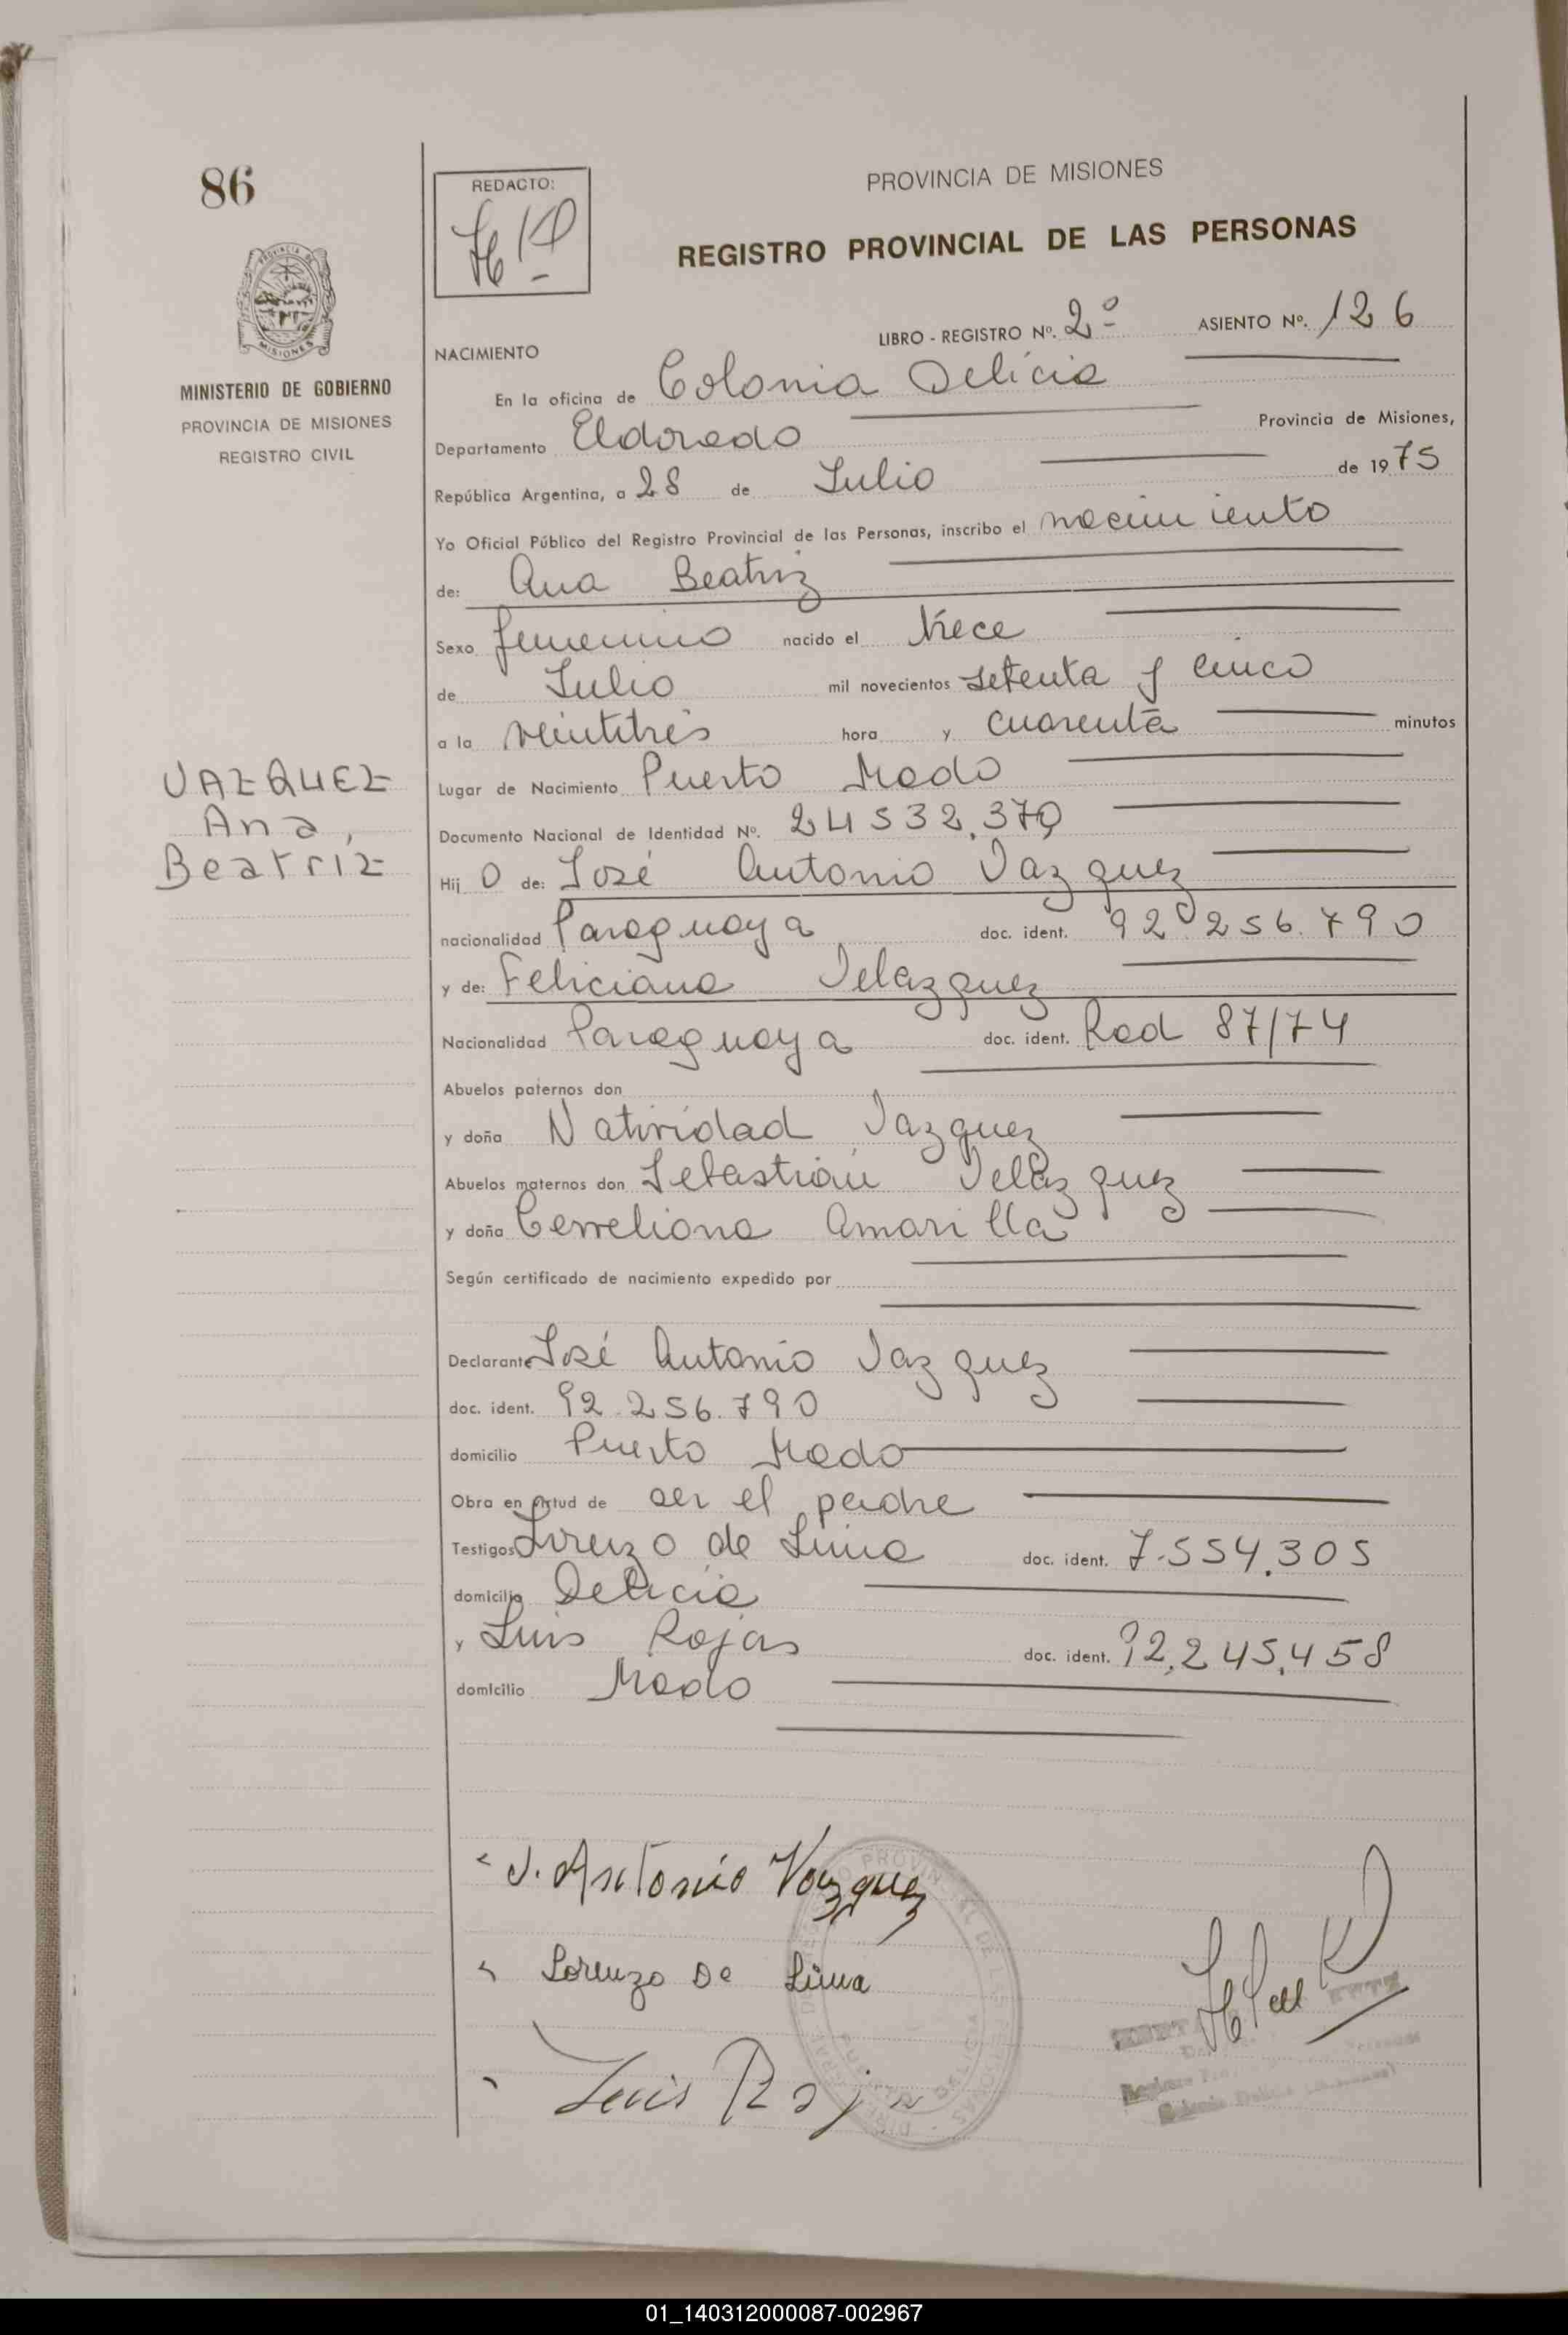 86
REDACTO:
PROVINCIA DE MISIONES
REGISTRO PROVINCIAL DE LAS PERSONAS
MISIONES
MINISTERIO DE GOBIERNO
PROVINCIA DE MISIONES
REGISTRO CIVIL
LIBRO - REGISTRO Nº. 2º ASIENTO Nº. 126
NACIMIENTO
En la oficina de Colonia Delicia
Departamento Eldorado Provincia de Misiones,
República Argentina, a 28 de Julio de 1975
Yo Oficial Público del Registro Provincial de las Personas, inscribo el nacimiento
de: Ana Beatriz
Sexo femenino nacido el trece
de Julio mil novecientos setenta y cinco
a la veintitrés hora y cuarenta minutos
VAZQUEZ
Ana,
Beatríz
Lugar de Nacimiento Puerto Mado
Documento Nacional de Identidad Nº. 24532.370
Hij O de: José Antonio Vazquez
nacionalidad Paraguaya doc. ident. 92.256.790
y de: Feliciana Velazquez
Nacionalidad Paraguaya doc. ident. Rad 87/74
Abuelos paternos don
y doña Natividad Vazquez
Abuelos maternos don Sebastián Velazquez
y doña Cerreliona Amarilla
Según certificado de nacimiento expedido por
Declarante José Antonio Vazquez
doc. ident. 92.256.790
domicilio Puerto Mado
Obra en virtud de ser el padre
Testigos Lorenzo de Lima doc. ident. 7.554.305
domicilio Delicia
y Luis Rojas doc. ident. 92.245.458
domicilio Mado
J. Antonio Vazquez
Lorenzo De Lima
Luis Roja
01_140312000087-002967